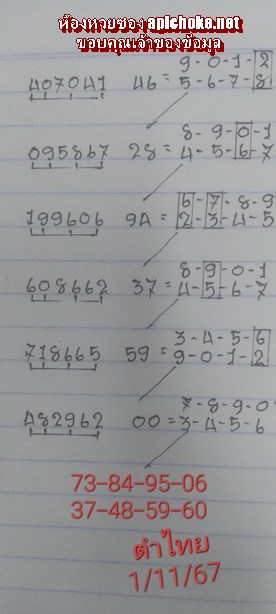 ห้องหวยซอง apichoke.net
ขอบคุณเจ้าของข้อมูล
9-0-1-2
407041 46 = 5-6-7-8
8-9-0-1
095867 28 = 4-5-6-7
6-7-8-9
199606 94 = 2-3-4-5
8-9-0-1
608662 37 = 4-5-6-7
3-4-5-6
718665 59 = 9-0-1-2
7-8-9-0
482962 00 = 3-4-5-6
73-84-95-06
37-48-59-60
ตำไทย
1/11/67